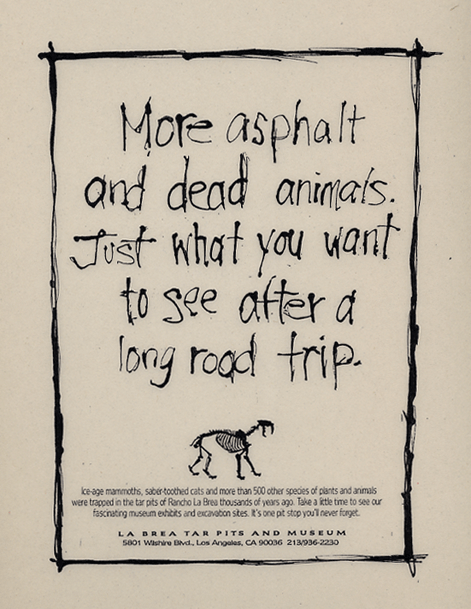 More asphalt
and dead animals.
Just what you want
to see after a
long road trip.
Ice-age mammoths, saber-toothed cats and more than 500 other species of plants and animals
were trapped in the tar pits of Rancho La Brea thousands of years ago. Take a little time to see our
fascinating museum exhibits and excavation sites. It's one pit stop you'll never forget.
LA BREA TAR PITS AND MUSEUM
5801 Wilshire Blvd., Los Angeles, CA 90036 213/936-2230